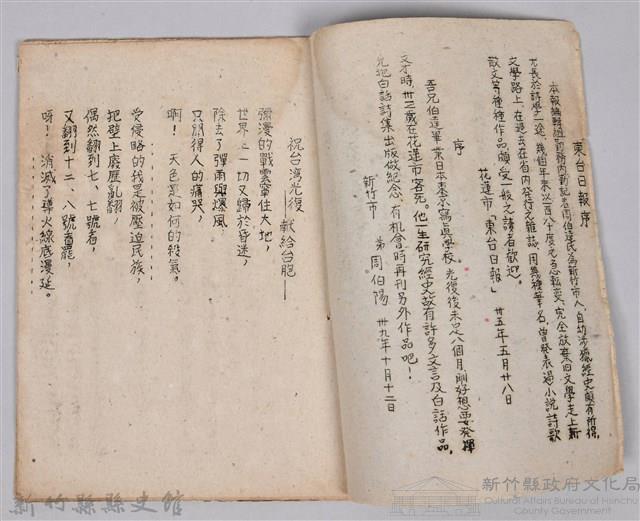 東台日報序
本報編輯
周伯達氏為新竹市人，自幼涉獵經史頗有所得，
尤長於詩學一途，幾個年來以一百八十度
完全放棄旧文學走上新
文學路上，在過去在省內發行之雜誌，用幾種筆名，曾發表過小說詩歌
散文等種種作品，頗受一般之讀者歡迎。
花蓮市「東台日報」 卅五年五月廿八日
序
吾兄伯達畢業日本東京寫真學校。光復後未足八個月，剛好想要發揮
文才時，卅三歲在花蓮市客死。他一生研究經史故有許多文言及白話作品，
先把白話詩集出版做紀念，有机會時再刊另外作品吧！
新竹市 弟 周伯陽 卅九年十月十二日
祝台湾光復 献給台胞——
彌漫的戰雲罩住大地，
世界上一切又歸於昏迷，
除去了彈雨與爆風
只聽得人的痛哭，
啊！ 天色是如何的殺氣。
受侵略的我是被壓迫民族，
把壁上廢歷亂翻，
偶然翻到七、七號者，
又翻到十二、八號者罷，
呀！ 消滅了導火線底漫延。
新竹縣縣史館
新竹縣政府文化局
Cultural Affairs Bureau of Hsinchu
County Government